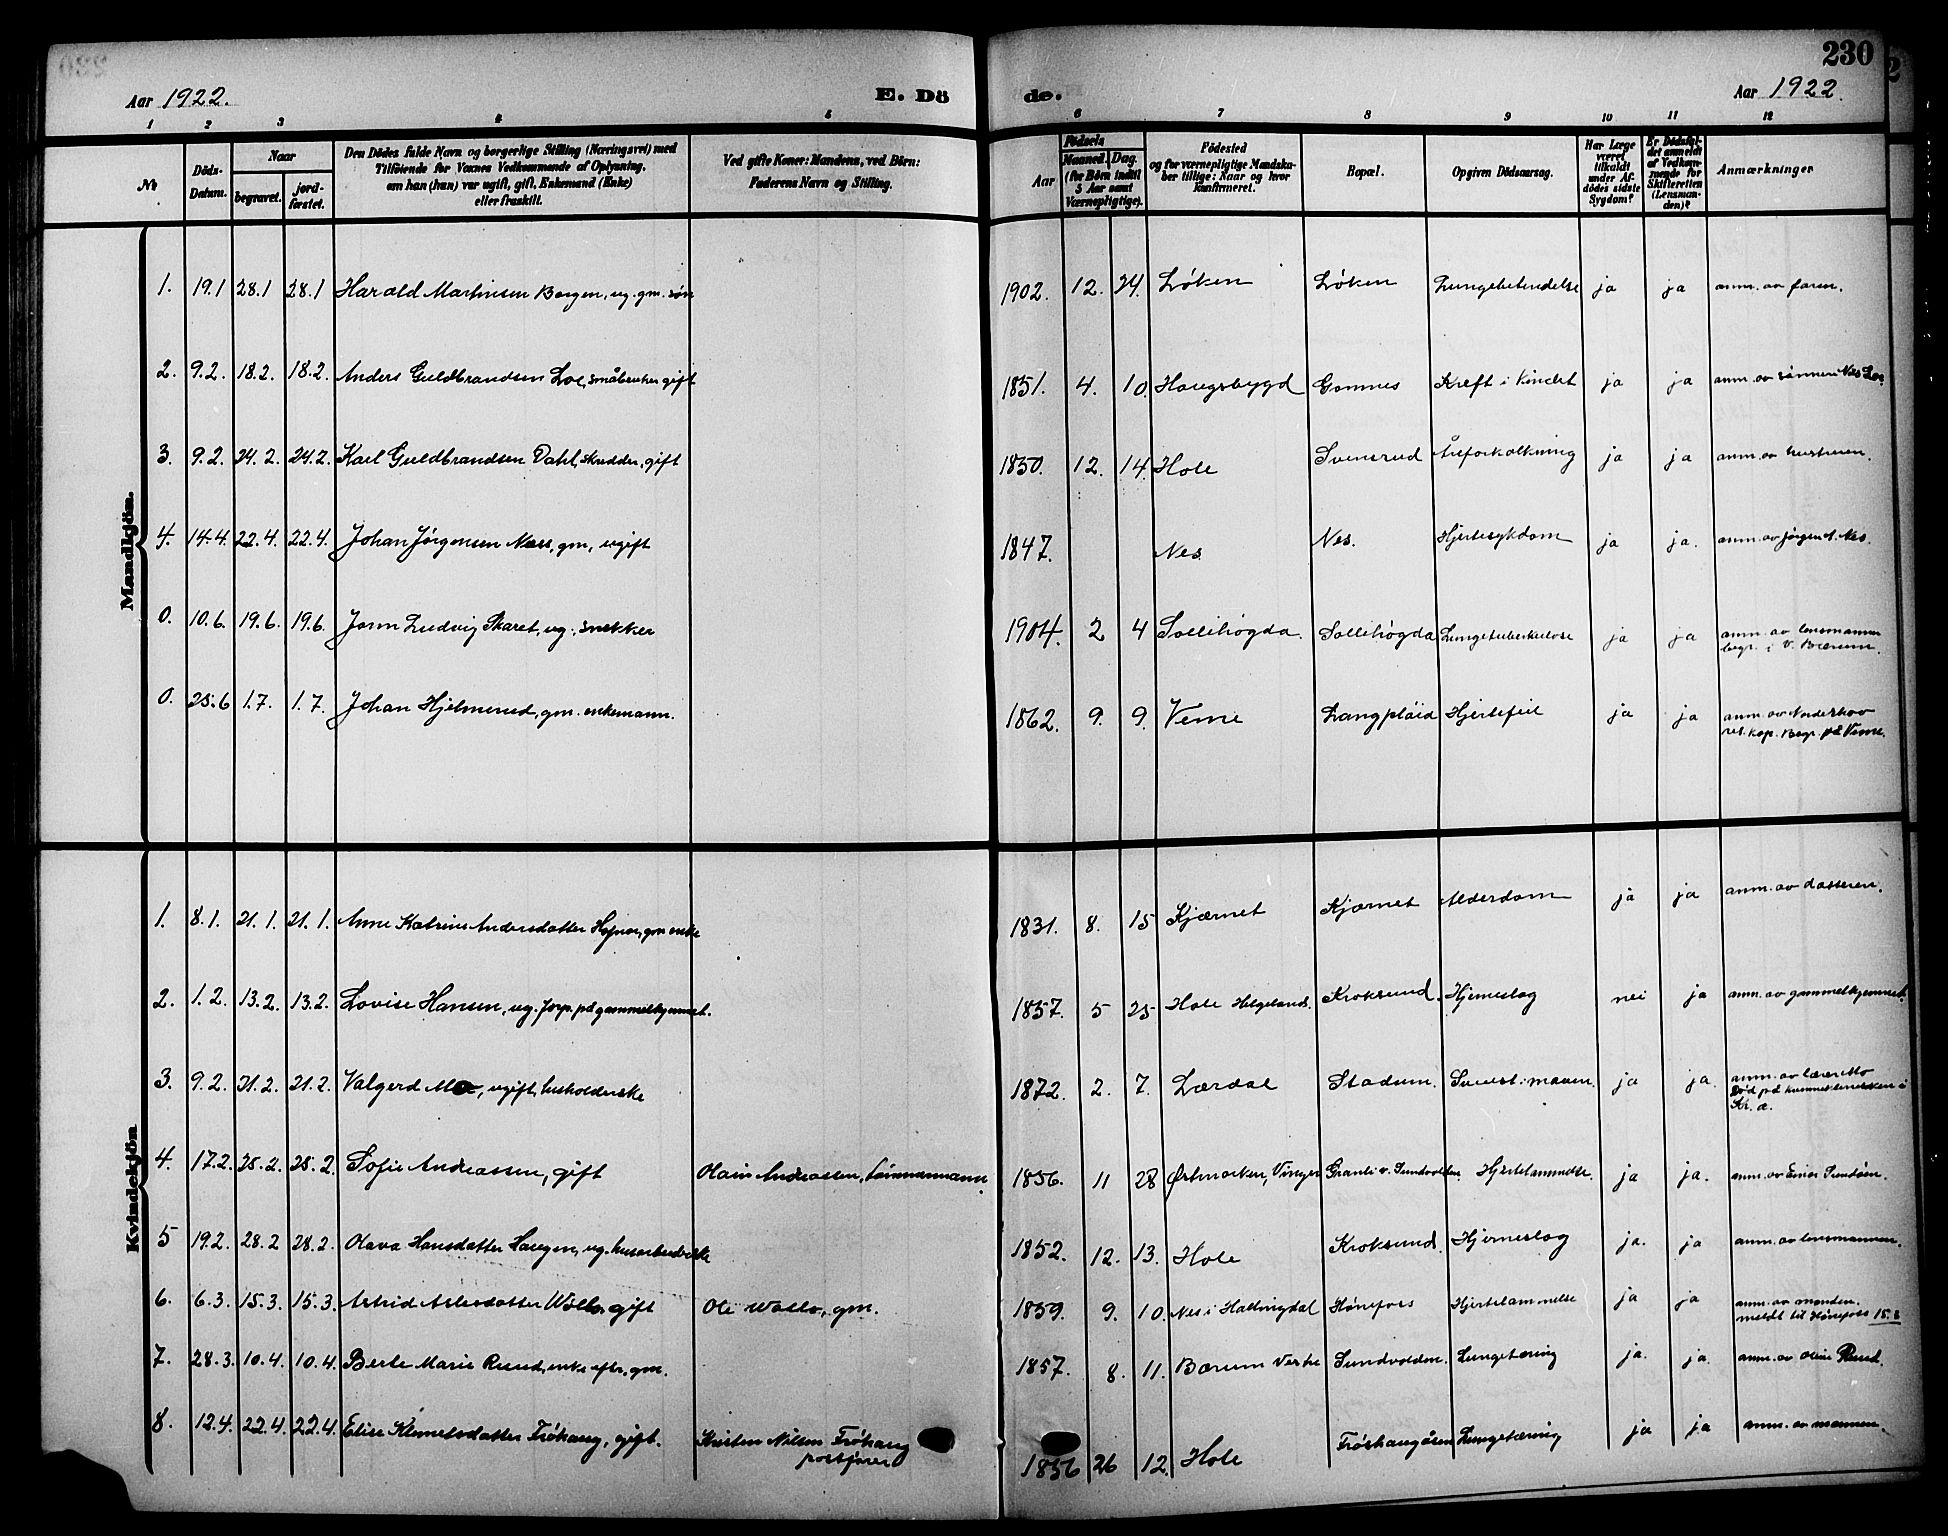 230
Aar 1922.
E. Dö
de.
Aar 1922.
1 2 3 4 5 6 7 8 9 10 11 12
№
Döds-
Datum.
Naar
begravet.
jord-
fæstet.
Den Dödes fulde Navn og borgerlige Stilling (Næringsvei) med
Tilföiende for Voxnes Vedkommende af Oplysning,
om han (hun) var ugift, gift, Enkemand (Enke)
eller fraskilt.
Ved gifte Koner: Mandens, ved Börn:
Faderens Navn og Stilling.
Aar
Födsels
Maaned. Dag.
(for Börn indtil
5 Aar samt
Værnepligtige).
Födested
og for værnepligtige Mandska-
ber tillige: Naar og hvor
konfirmeret.
Bopæl.
Opgiven Dödsaarsag.
Har Læge
været
tilkaldt
under Af-
dödes sidste
Sygdom?
Er Dödsfal-
det anmeldt
af Vedkom-
mende for
Skifteretten
(Lensman-
den)?
Anmærkninger
Mandkjön.
1. 19.1 28.1 28.1 Harald Martinsen Borgen, ug. gm. søn 1902. 12. 24. Løken Løken Lungebetendelse ja ja anm. av faren.
2. 9.2. 18.2. 18.2. Anders Guldbrandsen Loe, småbruker gift 1851. 4. 10. Haugsbygd Gomnes Kreft i ja ja anm. av sønnen Nils Loe
3. 9.2. 24.2. 24.2. Karl Guldbrandsen Dahl, skredder, gift 1850. 12. 14. Hole Svensrud Åreforkalkning ja ja anm. av hustruen.
4. 14.4. 22.4. 22.4. Johan Jørgensen Næss, gm, ugift 1847. Nes. Nes. Hjertesykdom ja ja. anm. av Jørgen J. Nes.
0. 10.6. 19.6. 19.6. Jorm Ludvig Skaret, ug., snekker 1904. 2 4 Sollihøgda. Sollihøgda Lungetuberkulose ja ja anm. av lensmannen
begr. i V. Bærum.
0. 25.6 1.7. 1.7. Johan Hjelmerud, gm. enkemann. 1862. 9. 9. Veme Langpløid Hjertefeil ja ja anm. av Norderhov
res. kap. Begr. på Veme.
Kvindekjön
1. 8.1. 21.1. 21.1. Anne Katrine Andersdatter Hafnor, gm enke 1831. 8. 15 Kjærnet Kjærnet Alderdom ja ja anm. av datteren.
2. 1.2. 13.2. 13.2. Lovise Hansen, ug. forp. på gammelhjemmet. 1857. 5 25 Hole Helgeland. Kroksund. Hjerneslag nei ja anm. av gammelhjemmet.
3. 9.2. 21.2. 21.2. Valgerd Mo, ugift, husholderske 1872. 2. 7. Lærdal Stadum. i maven. ja ja. anm. av lærer Mo
Død på i
Kr. a.
4. 17.2. 25.2. 25.2. Sofie Andreassen, gift Olaus Andreassen, 1856. 11 28 Østmarken, Vinger Granli v. Sundvolden. Hjertelammelse. ja ja. anm. av Einar Sundøen.
5 19.2. 28.2 28.2. Olava Hansdatter Haugen, ug. husarbeiderske 1852. 12. 13. Hole Kroksund. Hjerneslag ja. ja anm. av lensmannen.
6. 6.3. 15.3. 15.3. Astrid Aslesdatter Wollo, gift Ole Wollo, gm. 1859. 9. 10. Nes i Hallingdal Hønefoss Hjertelammelse ja ja anm. av manden.
meldt til Hønefoss 15.3
7. 28.3. 10.4. 10.4. Berte Marie Rund, enke efter gm. 1857. 8. 11. Bærum Vestre Sundvolden. Lungetæring ja. ja. anm. av Oline Rund.
8. 12.4. 22.4. 22.4. Elise Klemetsdatter Frøhaug, gift. Kristen Nilsen Frøhaug
postfører 1856 26 12. Hole Frøshaugåsen Lungetæring ja ja anm. av mannen.